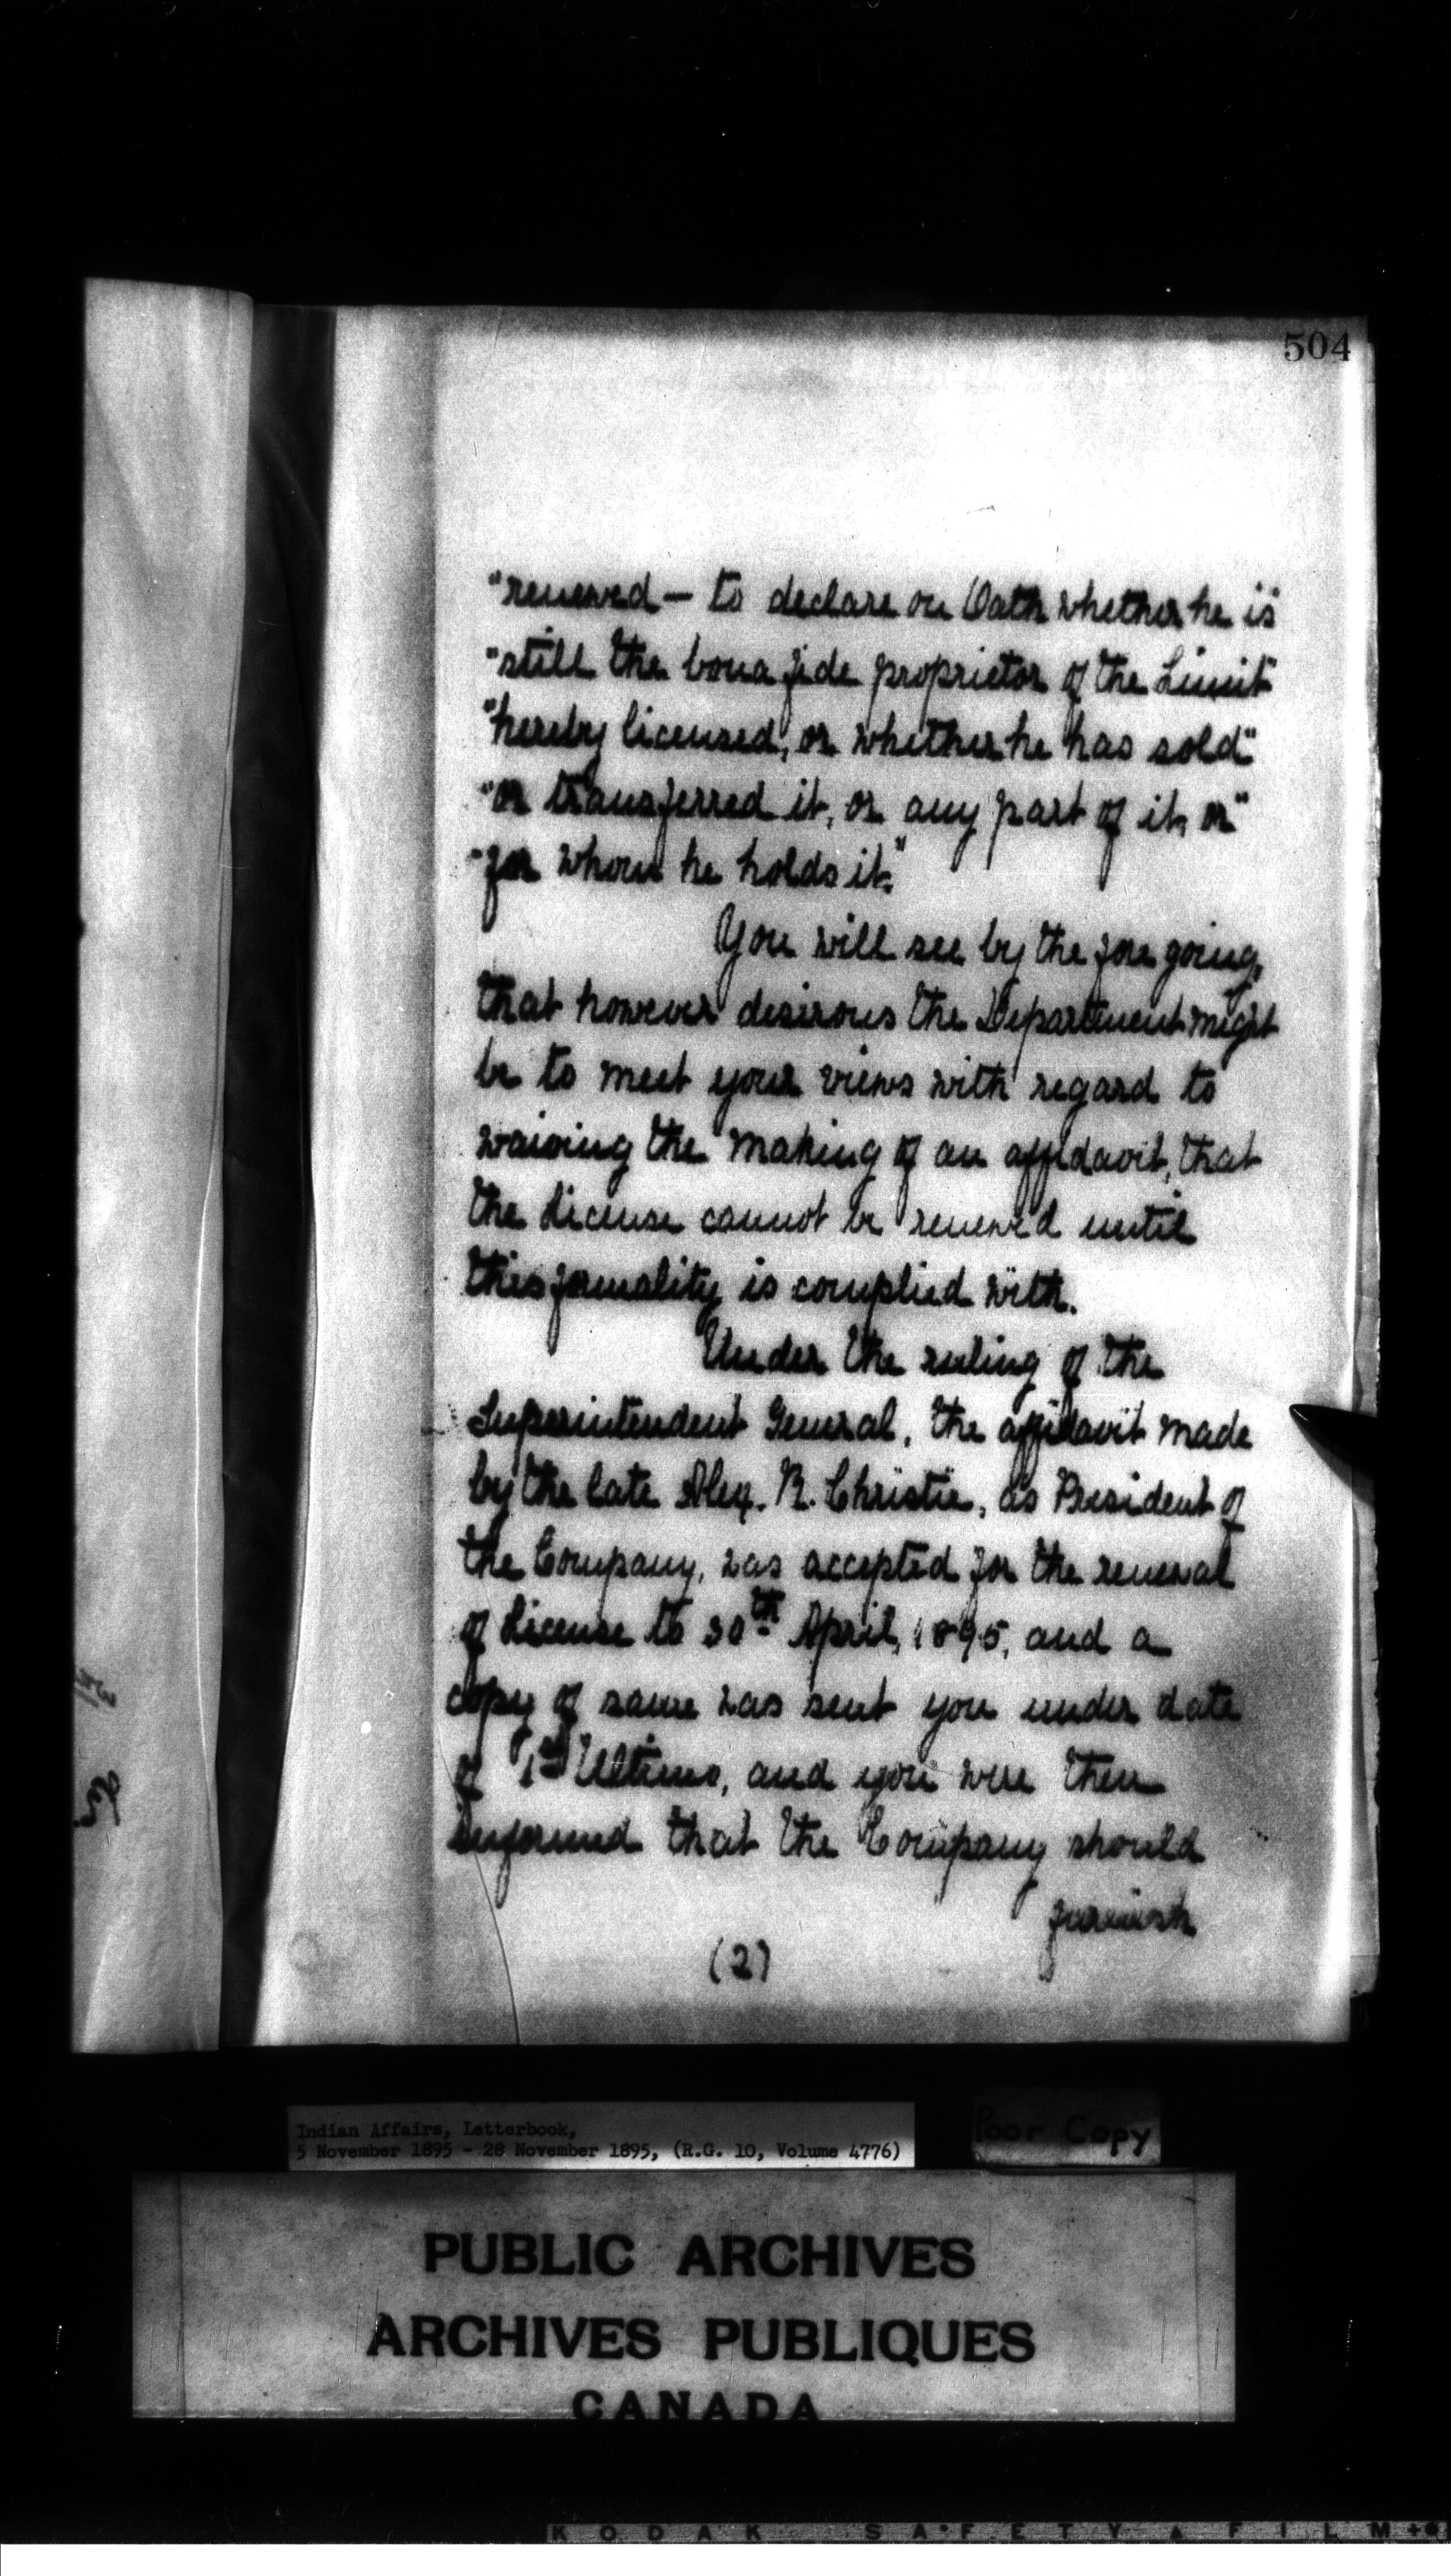 504
"renewed — to declare on Oath whether he is"
"still the bona fide proprietor of the Limit"
"hereby licensed, or whether he has sold"
"or transferred it, or any part of it, or"
"for whom he holds it."
You will see by the fore going,
that however desirous the Department might
be to meet your views with regard to
waiving the making of an affidavit, that
the License cannot be renewed until
this formality is complied with.
Under the ruling of the
Superintendent General, the affidavit made
by the late Alex. R. Christie, as President of
the Company, was accepted for the renewal
of License to 30th April, 1895, and a
copy of same was sent you under date
of 1st Ultimo, and you were then
informed that the Company should
furnish
(2)
Indian Affairs, Letterbook,
5 November 1895 - 28 November 1895, (R.G. 10, Volume 4776)
Poor Copy
PUBLIC ARCHIVES
ARCHIVES PUBLIQUES
CANADA
KODAK SAFETY FILM